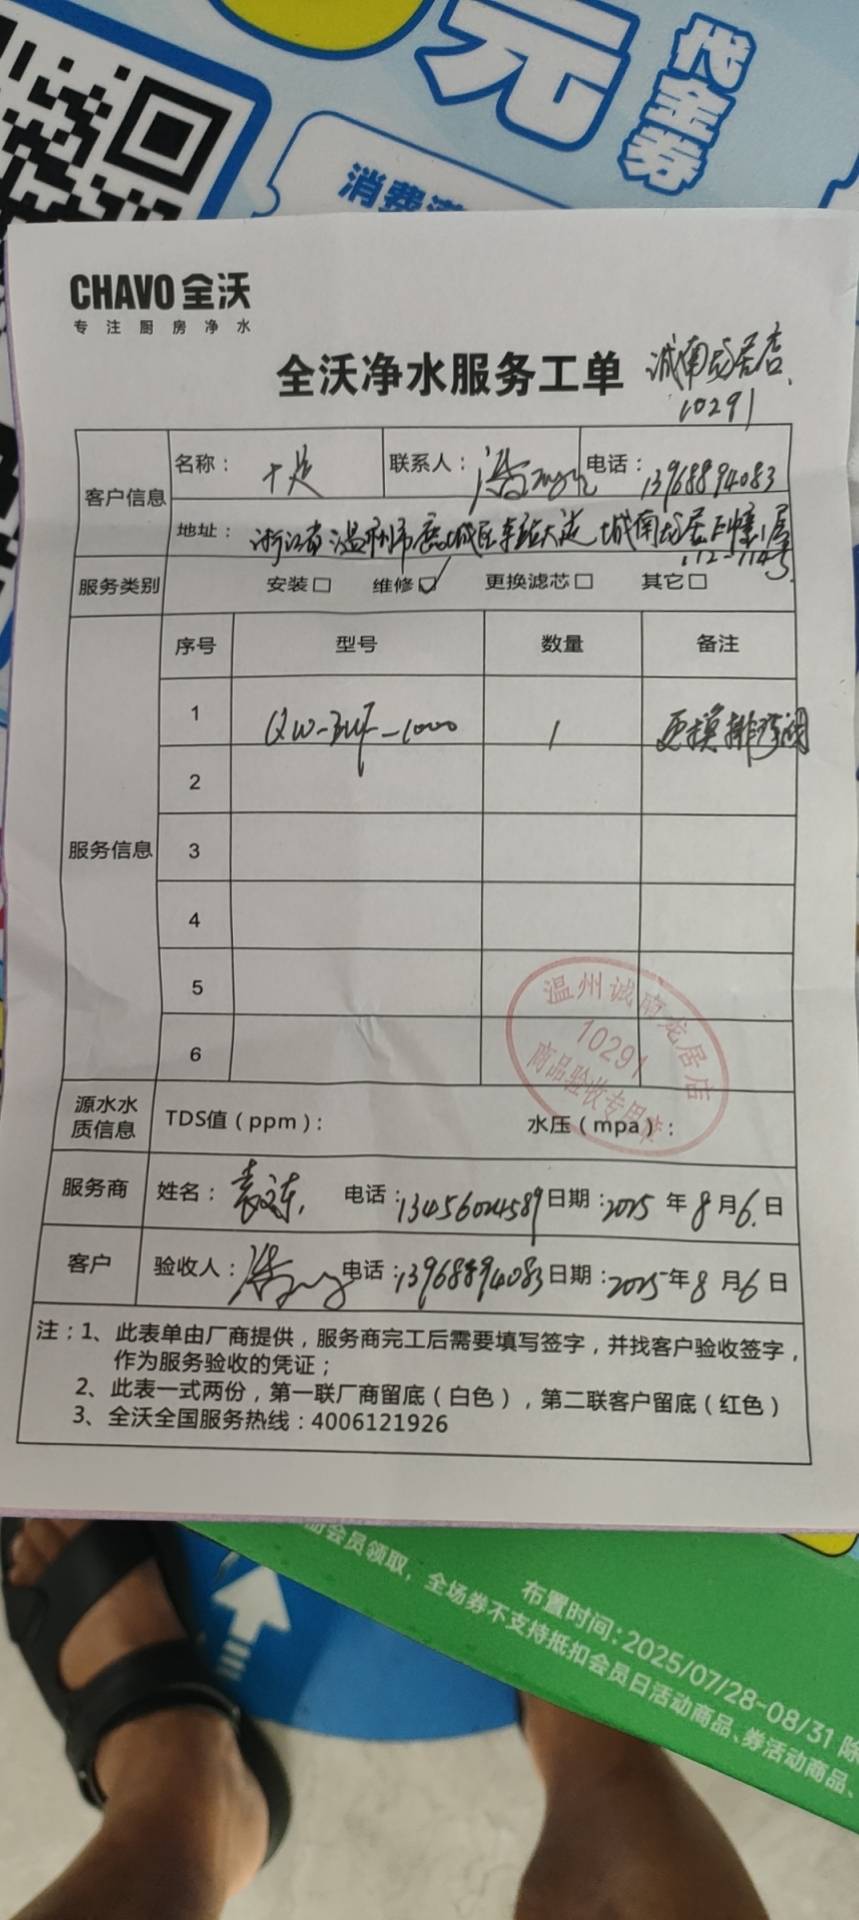 元
代金券
消费满
CHAVO 全沃
专注厨房净水
全沃净水服务工单
诚南龙居店
10291
客户信息
名称：十足
联系人：
电话：13968894083
地址：浙江省温州市鹿城区车站大道城南龙居
服务类别
安装□ 维修☑ 更换滤芯□ 其它□
服务信息
序号 型号 数量 备注
1 QW-3UF-1000 1 更换排污阀
2
3
4
5
6
温州诚南龙居店
10291
商品验收专用章
源水水质信息
TDS值（ppm）： 水压（mpa）：
服务商 姓名： 电话：13456024589 日期：2025年8月6日
客户 验收人： 电话：13968894083 日期：2025年8月6日
注：1、此表单由厂商提供，服务商完工后需要填写签字，并找客户验收签字，
作为服务验收的凭证；
2、此表一式两份，第一联厂商留底（白色），第二联客户留底（红色）
3、全沃全国服务热线：4006121926
布置时间：2025/07/28-08/31 除
会员领取，全场券不支持抵扣会员日活动商品、券活动商品、